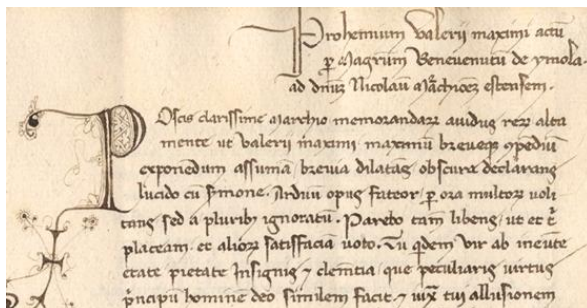 Prohemium Valerii maximi actū
p̱ Magr̄um Benevenutū de ymola
ad dn̄uʒ Nicolaū Mᷓchioēʒ estensem.
Poscis clarissime marchio memorandaꝝ avidus reꝝ alta
mente ut Valerii maximi maximū brevequʒ ꝯpēdiū
exponēdum assumā / brevia dilatās / obscura declarans
lucido cū sermone. Arduū opus fateor / p̱ ora multoꝝ voli
tans sed a pluribꝫ ignoratū. Parebo tam̄ libens, ut et t̄
placeam, et alioꝝ satisfaciā voto. Tu qͥdem vir ab ineūte
etate pietate Insignis ⁊ clem̄tia / que peculiaris virtus
pͥncipū hominē deo similem facit. ⁊ iuxᷓ tui allusionem